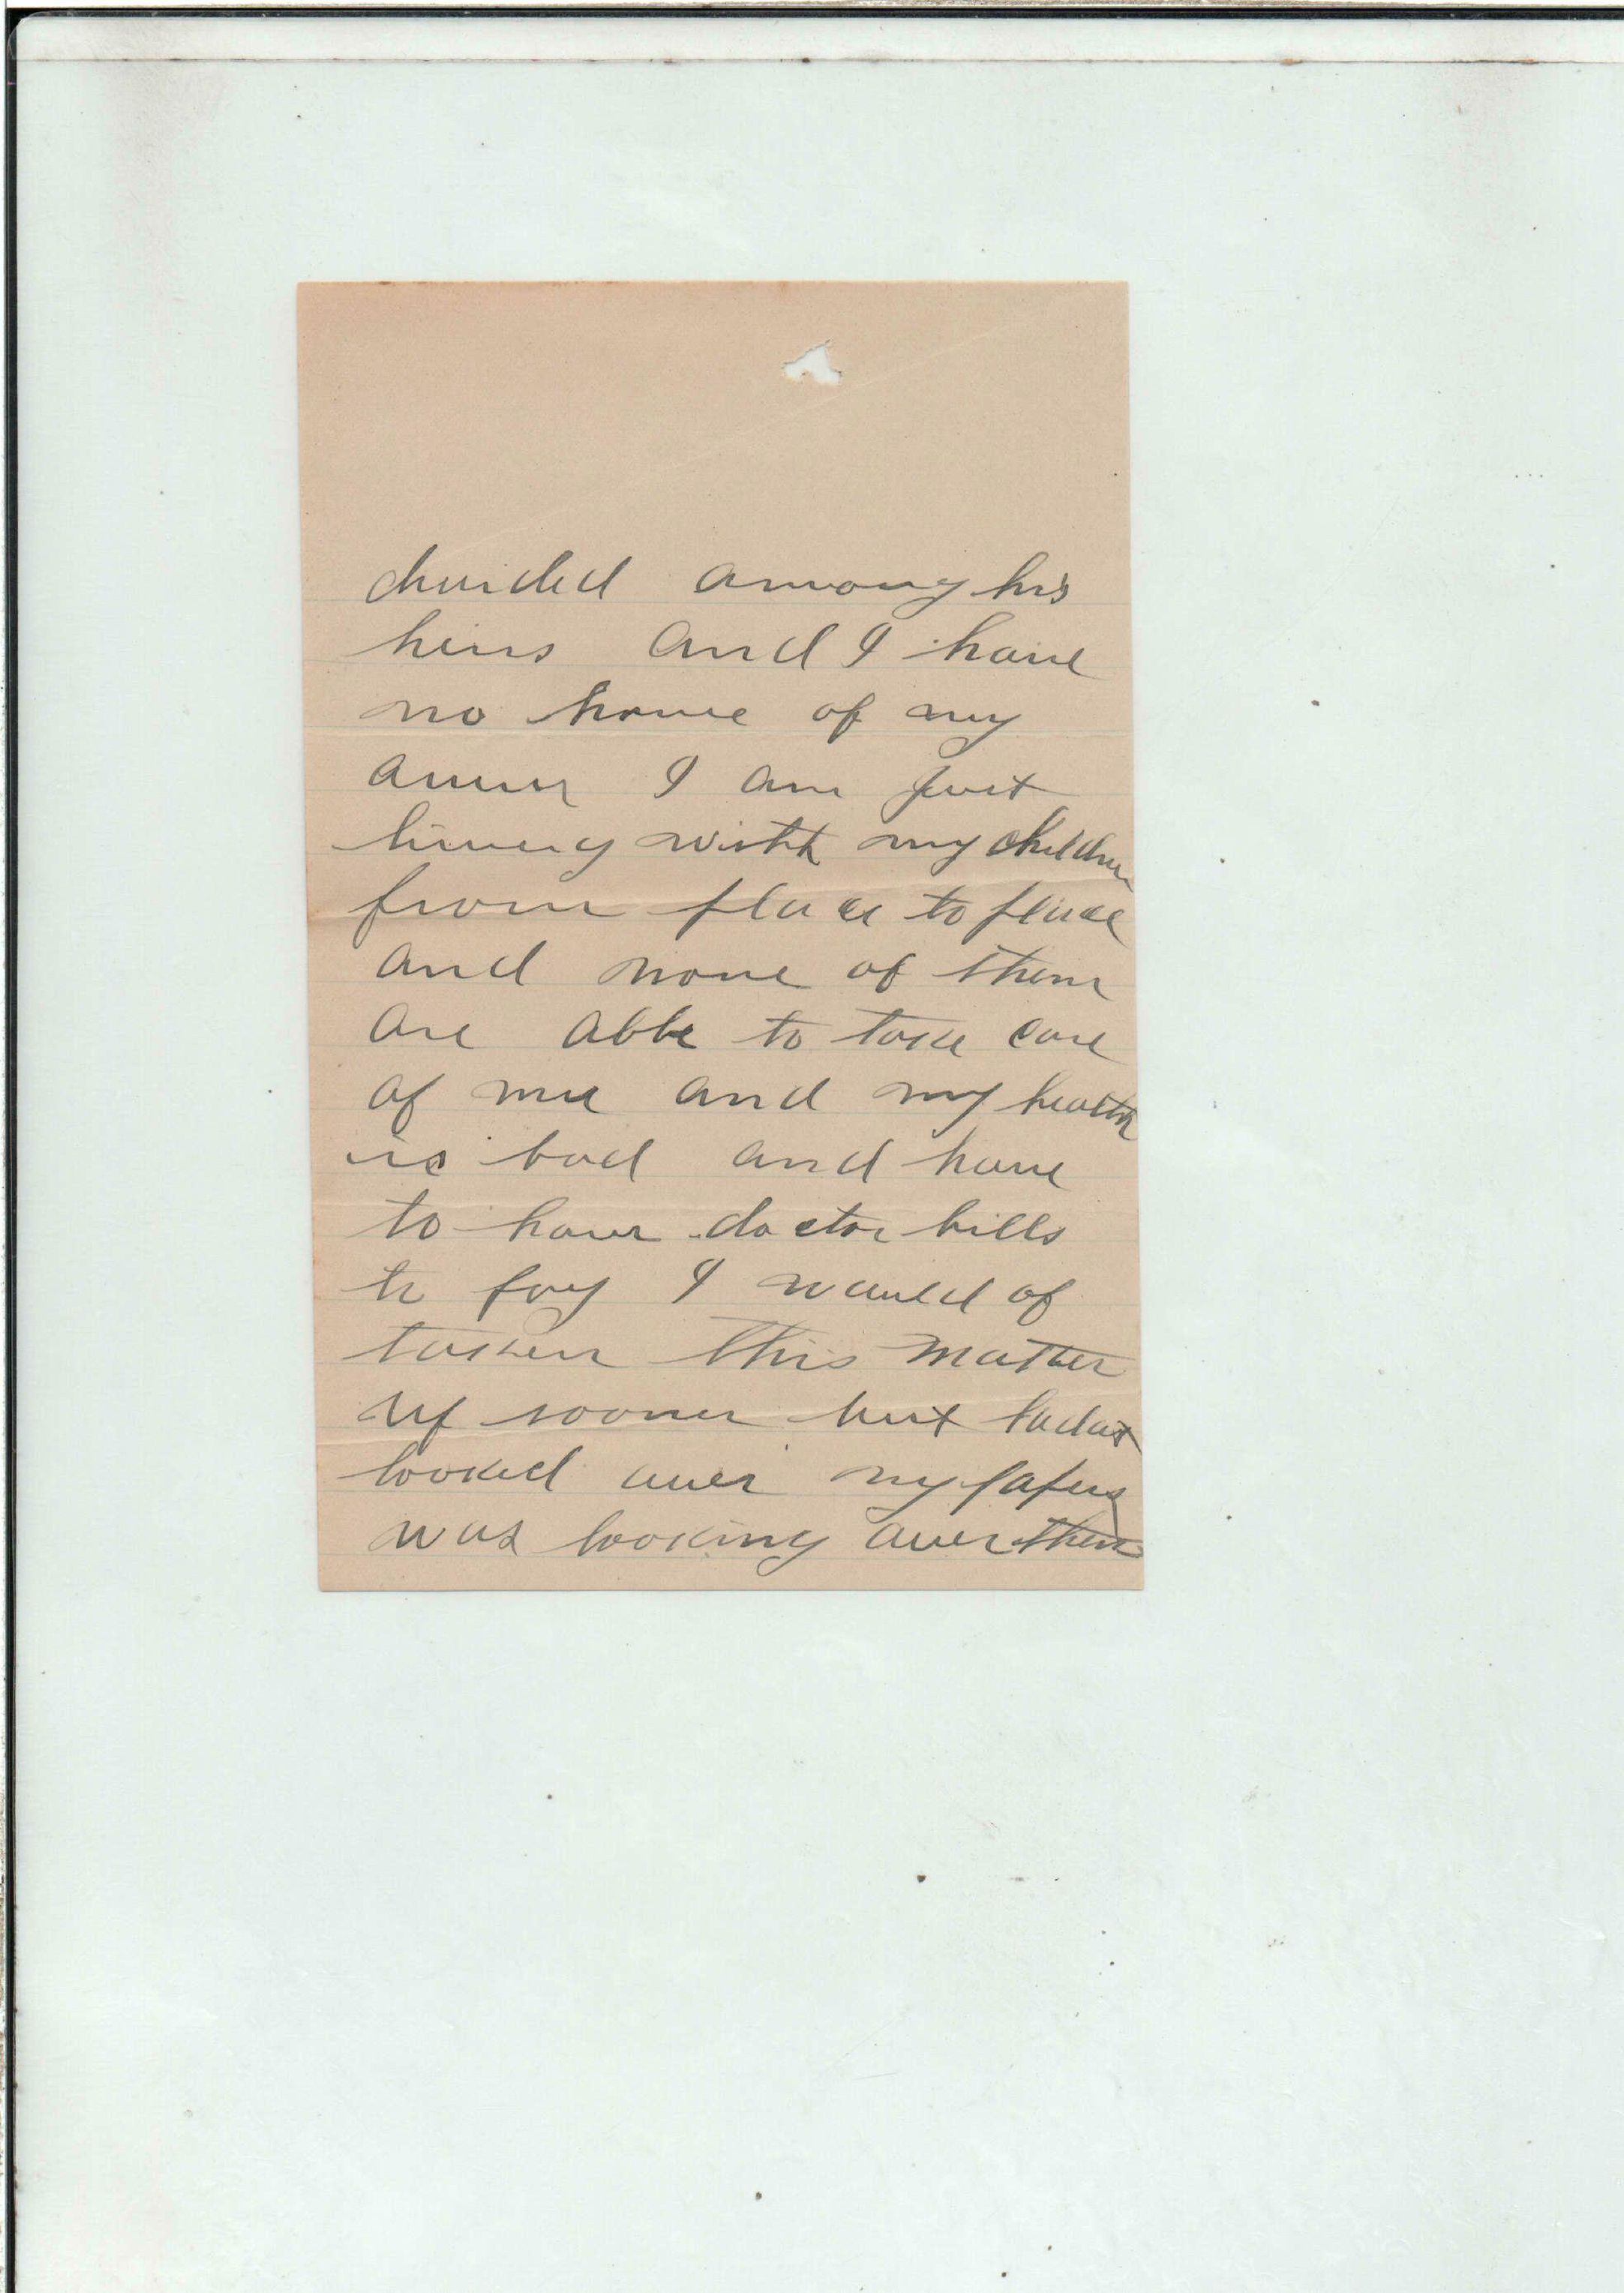 divided among his
heirs and I have
no home of my
own I am just
living with my children
from place to place
and none of them
are able to take care
of me and my health
is bad and have
to have doctor bills
to pay I would of
taken this matter
up sooner but hadnt
looked over my papers
was looking over them